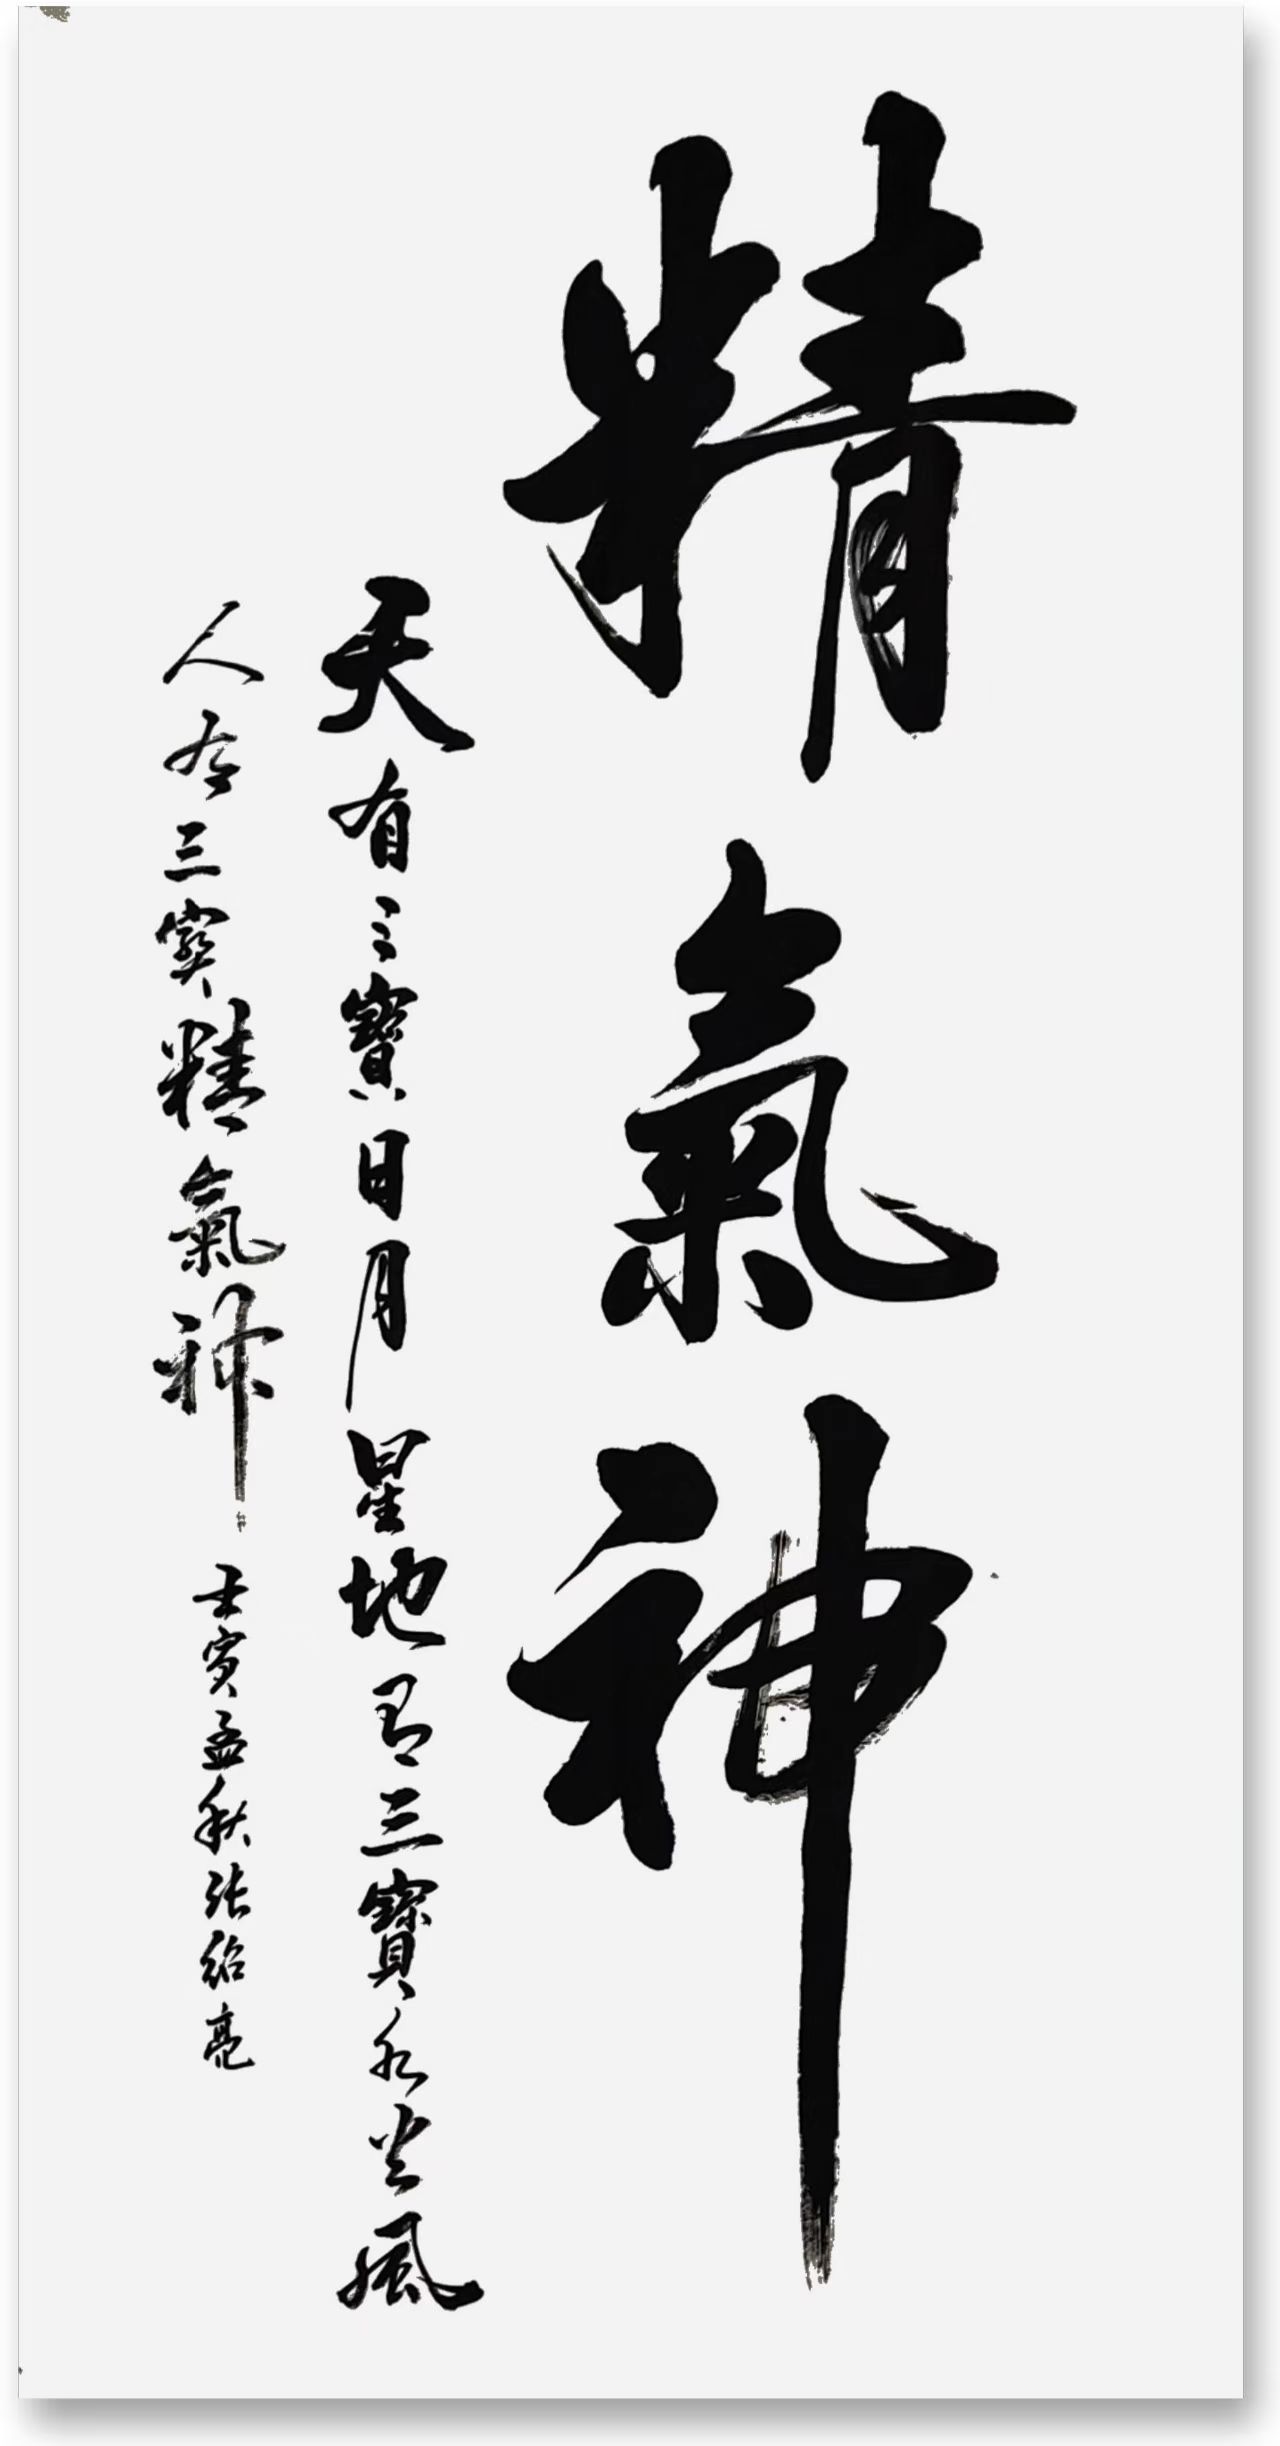 精氣神
天有三寶日月星地有三寶水火風
人有三寶精氣神 壬寅孟秋張紹亮